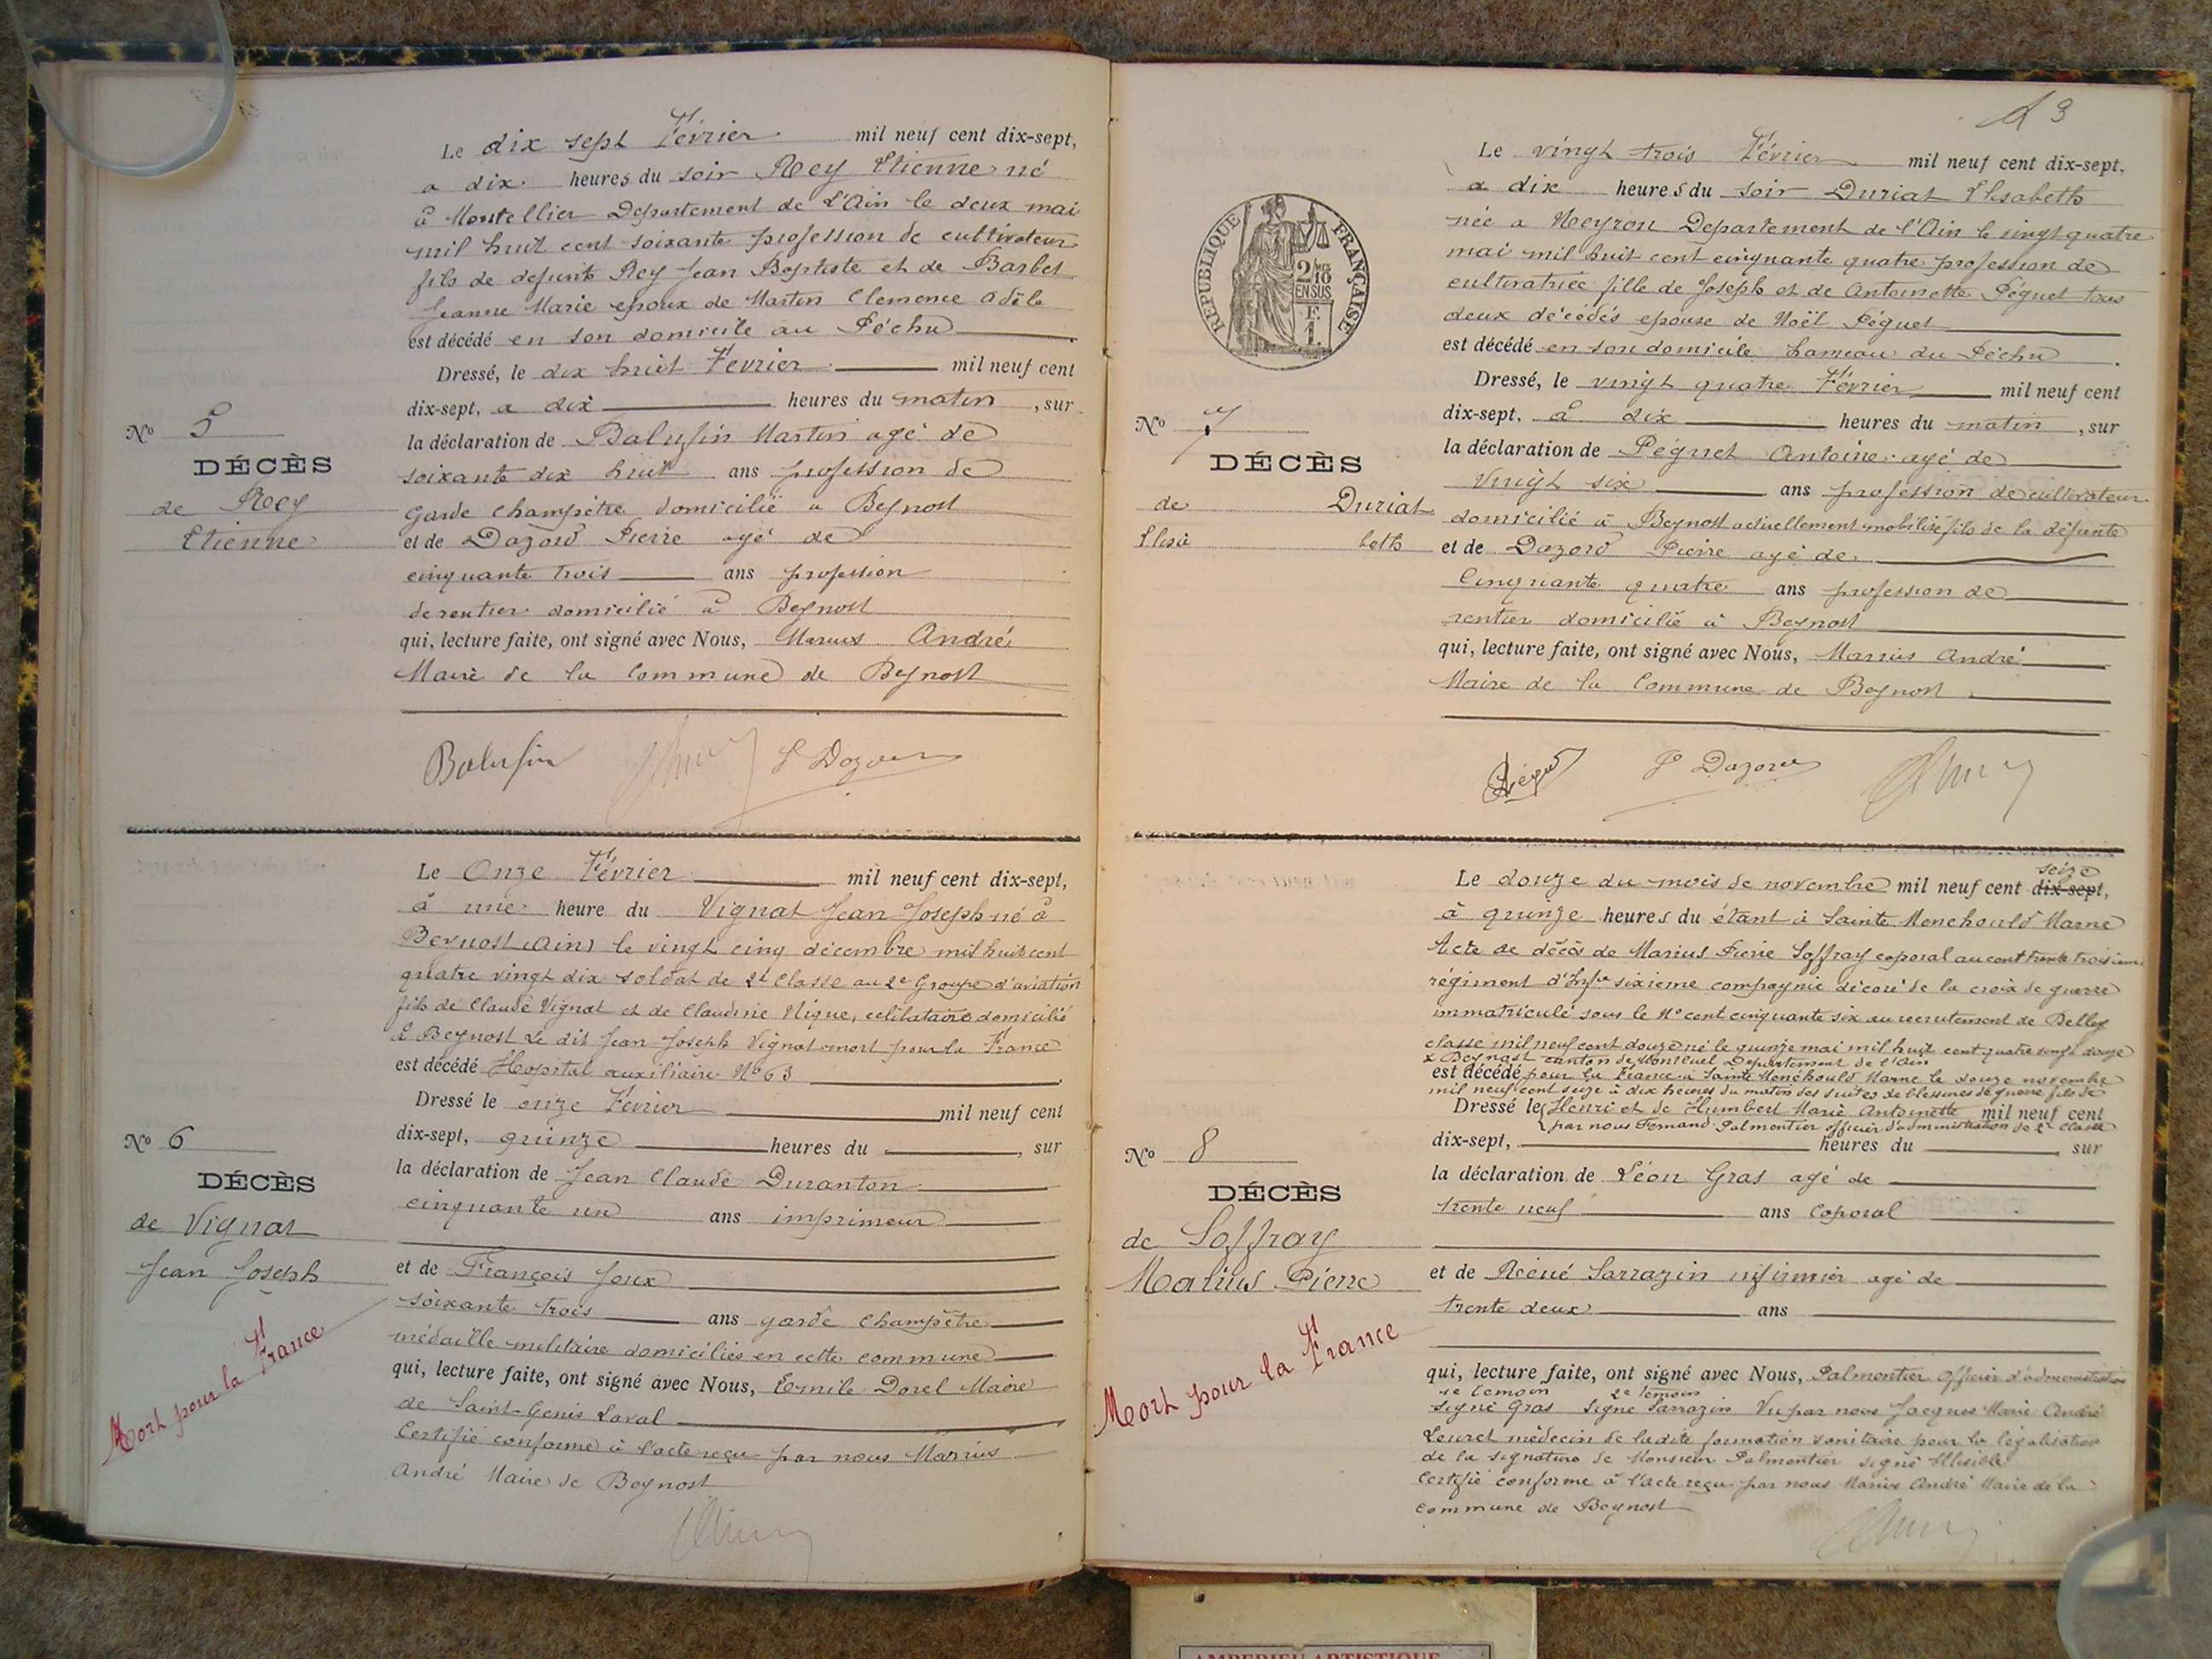 Le dix sept Février mil neuf cent dix-sept,
a dix heures du soir Rey Etienne né
à Montellier Departement de L'Ain le deux mai
mil huit cent soixante profession de cultivateur
fils de defunts Rey Jean Baptiste et de Barbet
Jeanne Marie epoux de Martin Clemence Adèle
est décédé en son domicile au Péchu
Dressé, le dix huit Fevrier mil neuf cent
dix-sept, a dix heures du matin, sur
la déclaration de Balufin Martin agé de
soixante dix huit ans profession de
Garde Champêtre domicilié a Beynost
et de Dazord Pierre agé de
cinquante trois ans profession
de rentier domicilié à Beynost
qui, lecture faite, ont signé avec Nous, Marius André
Maire de la Commune de Beynost
No 5
DÉCÈS
de Rey
Etienne
Balufin P Dazord
Le Onze Février mil neuf cent dix-sept,
à une heure du Vignat Jean Joseph né à
Beynost (Ain) le vingt cinq décembre mil huit cent
quatre vingt dix soldat de 2e Classe au 2e Groupe d'aviation
fils de Claude Vignat et de Claudine Nique, celibataire domicilié
à Beynost Le dit Jean Joseph Vignat mort pour la France
est décédé Hopital auxiliaire No 63
Dressé le onze Fevrier mil neuf cent
dix-sept, quinze heures du , sur
la déclaration de Jean Claude Duranton
cinquante un ans imprimeur
et de François Joux
soixante trois ans garde Champêtre
médaille militaire domiciliés en cette commune
qui, lecture faite, ont signé avec Nous, Emile Dorel Maire
de Saint-Genis Laval
Certifié conforme à l'acte reçu par nous Marius
André Maire de Beynost
No 6
DÉCÈS
de Vignat
Jean Joseph
Mort pour la France
3
RÉPUBLIQUE FRANÇAISE
2/10
EN SUS
F.
1.
Le vingt trois Février mil neuf cent dix-sept,
a dix heures du soir Duriat Elisabeth
née a Neyron Departement de l'Ain le vingt quatre
mai mil huit cent cinquante quatre profession de
cultivatrice fille de Joseph et de Antoinette Péguet tous
deux décédés epouse de Noël Péguet
est décédé en son domicile hameau du Péchu
Dressé, le vingt quatre Février mil neuf cent
dix-sept, à dix heures du matin, sur
la déclaration de Péguet Antoine agé de
Vingt six ans profession de cultivateur
domicilié à Beynost actuellement mobilisé fils de la défunte
et de Dazord Pierre agé de
Cinquante quatre ans profession de
rentier domicilié à Beynost
qui, lecture faite, ont signé avec Nous, Marius André
Maire de la Commune de Beynost
No 7
DÉCÈS
de Duriat
Elisa beth
P Dazord
seize
Le douze du mois de novembre mil neuf cent dix-sept,
à quinze heures du étant à Sainte Menehould Marne
Acte de décès de Marius Pierre Soffray caporal au cent trente troisième
régiment d'Infie sixieme compagnie décoré de la croix de guerre
immatriculé sous le No cent cinquante six au recrutement de Belley
classe mil neuf cent douze né le quinze mai mil huit cent quatre vingt douze
à Beynost canton de Montluel Departement de l'Ain
est décédé pour la France à Sainte Menehould Marne le douze novembre
mil neuf cent seize à dix heures du matin des suites de blessures de guerre fils de
Dressé le Henri et de Humbert Marie Antoinette mil neuf cent
par nous Fernand Palmentier officier d'administration de 2e classe
dix-sept, heures du sur
la déclaration de Léon Gras agé de
trente neuf ans Caporal
et de René Sarrazin infirmier agé de
trente deux ans
qui, lecture faite, ont signé avec Nous, Palmentier officier d'administration
1e temoin 2e temoin
signé Gras signé Sarrazin Vu par nous Jacques Marie André
médecin de ladite formation sanitaire pour la légalisation
de la signature de Monsieur Palmentier signé illisible
Certifié conforme à l'acte reçu par nous Marius André Maire de la
commune de Beynost
No 8
DÉCÈS
de Soffray
Marius Pierre
Mort pour la France
AMBERIEU ARTISTIQUE